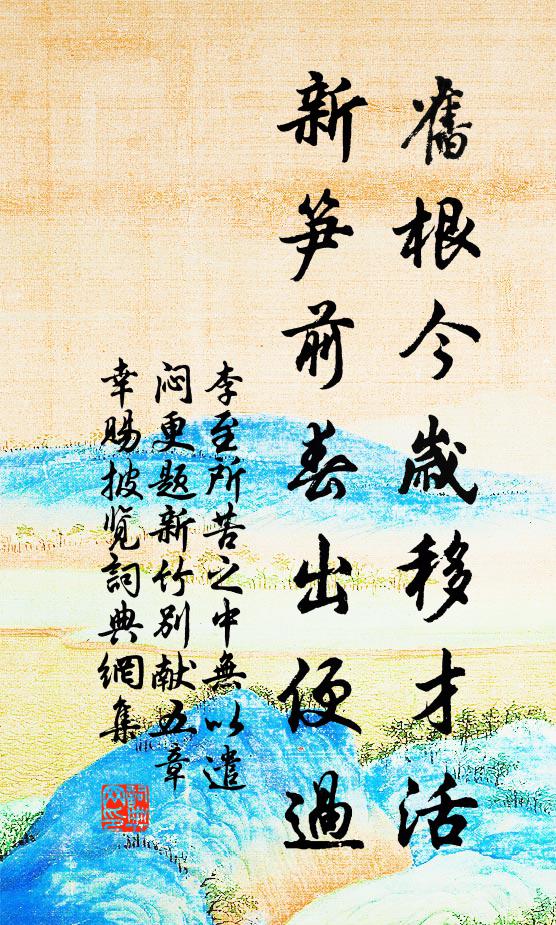 舊根今歲移才活
新笋前春出便過
李至所苦之中無以遣
闷更題新竹别献五章
幸賜披览詞典網集